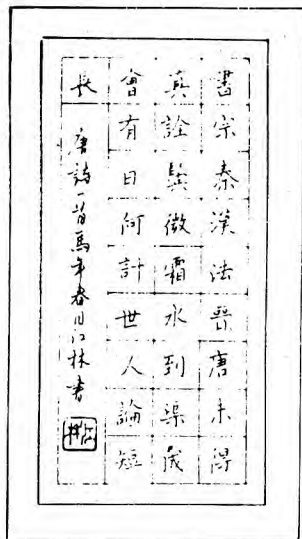 書宗秦漢法晉唐未得
真詮鬢微霜水到渠成
會有日何計世人論短
長
唐詩一首馬年春日江林書